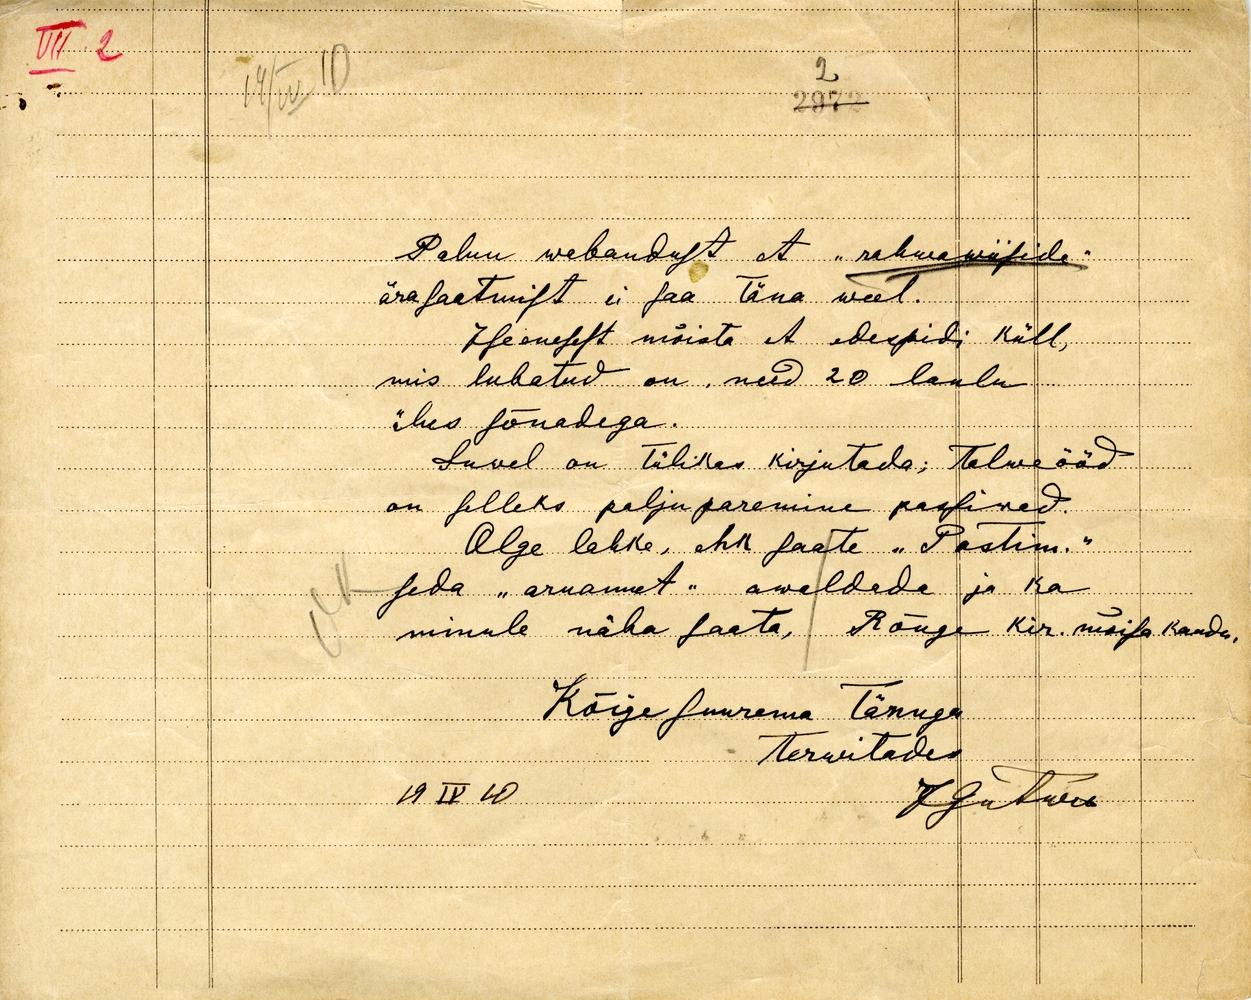 VII 2
19/IV 10
2
2972
Palun wabandust et „rahwawiiside"
ärasaatmist ei saa täna weel.
Iseenesest mõista et edespidi küll,
mis lubatud on, need 20 laulu
ühes sõnadega.
Suwel on tülikas kirjutada; talweööd
on selleks palju paremine passiwad.
Olge lahke, ehk saate „Postim."
seda „aruannet" awaldada ja ka
minule näha saata, Rõuge kir. mõisa kaudu.
Kõige suurema tänuga
terwitades
19 IV 10